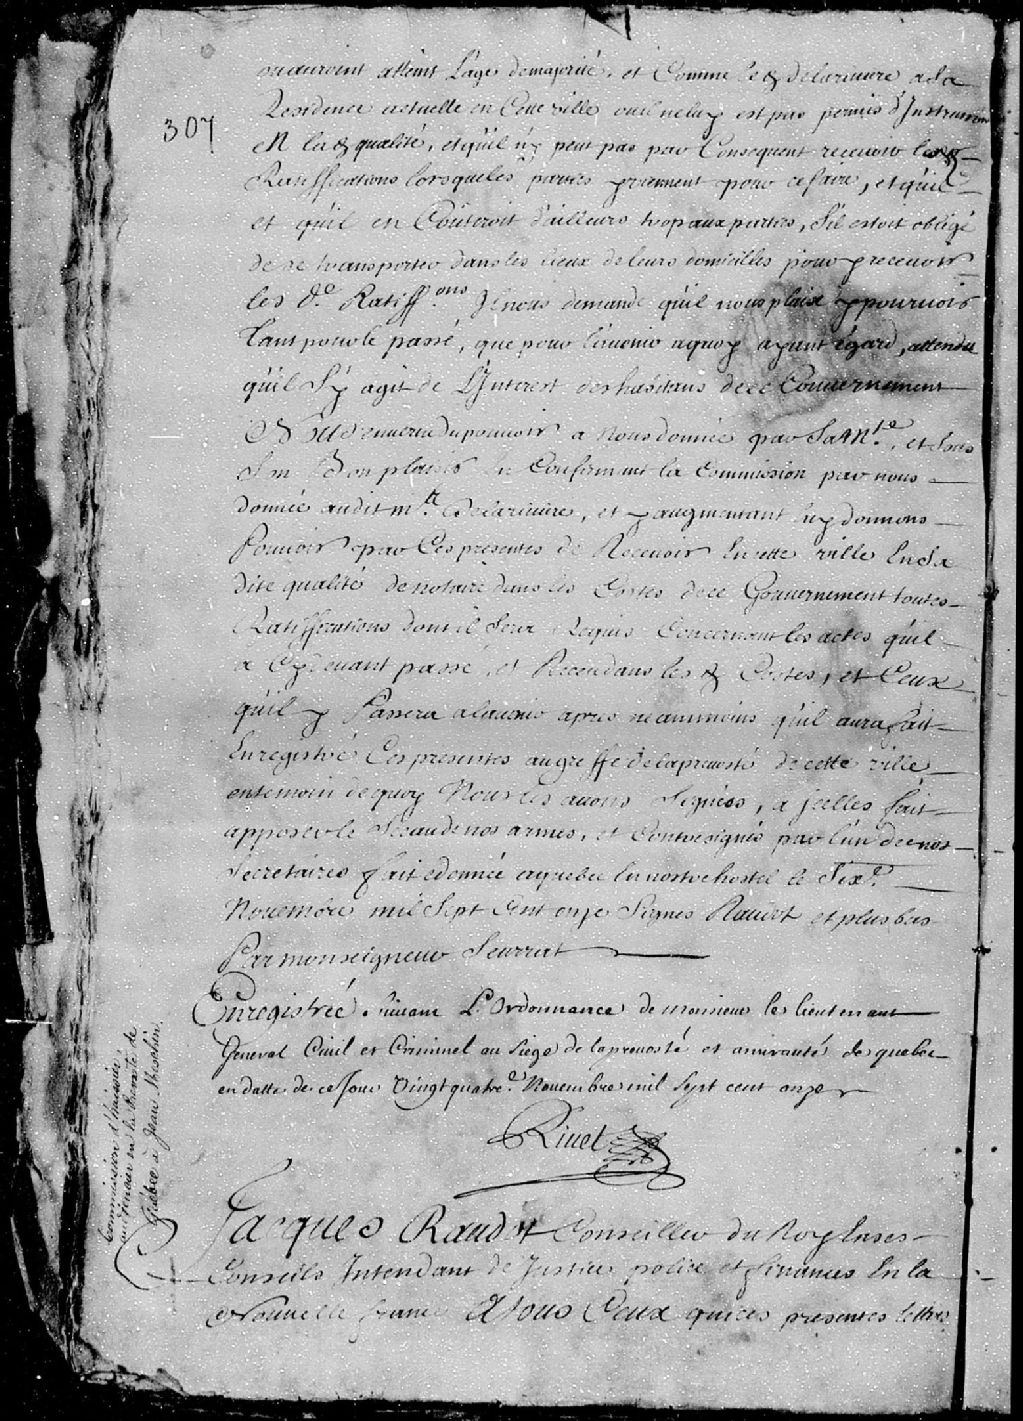 ou auroient atteins l'age de majorité, et Comme le d. delariuiere a sa
307
Residence actuelle en Cette ville ou il ne luy est pas permis d'Instrumenter
En la d. qualité, et qu'il n'y peut pas par Consequent receuoir les d.
Ratiffications lorsque les parties y viennent pour ce faire, et qu'il
et qu'il en Coûteroit d'ailleurs trop aux parties, S'il estoit obligé
de se transporter dans les lieux de leurs domicilles pour y receuoir
les d.e Ratiff.ons Il nous demande qu'il nous plaise y pouruoir
tant pour le passé, que pour l'auenir a quoy ayant égard, attendu
qu'il S'y agit de L'Interest des habitans de ce Gouuernement
Nous En uertu du pouuoir a Nous donnée par Sa M.te, et sous
Son bon plaisir en Confirmant la Commission par nous
donnée audit m.e delariuiere, et y augmentant luy donnons
Pouuoir par Ces presentes de Receuoir En cette ville En sa
dite qualité de notaire dans les Costes de ce Gouuernement toutes
Ratiffications dont il sera Requis Concernant les actes qu'il
a Cy deuant passé, et Receu dans les d. Costes, et Ceux
qu'il y Passera a lauenir apres neanmoins qu'il aura fait
Enregistré Ces presentes au greffe de la preuosté de cette ville
en temoin de quoy Nous les auons Signées, a jcelles fait
apposer le Sceau de nos armes, et Contresignés par l'un de nos
Secretaires fait et donnée a quebec En nostre hostel le Six.e
Nouembre mil Sept Cent onze Signés Raudot et plus bas
Par monseigneur Seurrat
Enregistrée Suiuant L'Ordonnance de monsieur le lieutenant
General Ciuil et Criminel au Siege de la preuosté et amirauté de quebec
en datte de ce Jour Vingt quatre.e Nouembre mil Sept cent onze
Riuet
Commission d'huissier
audiencier en la Prevoté de
Québec à Jean Meschin.
Jacques Raudot Conseiller du Roy En ses
Conseils Intendant de Justice police et finances En la
Nouuelle france A tous Ceux qui ces presentes lettres